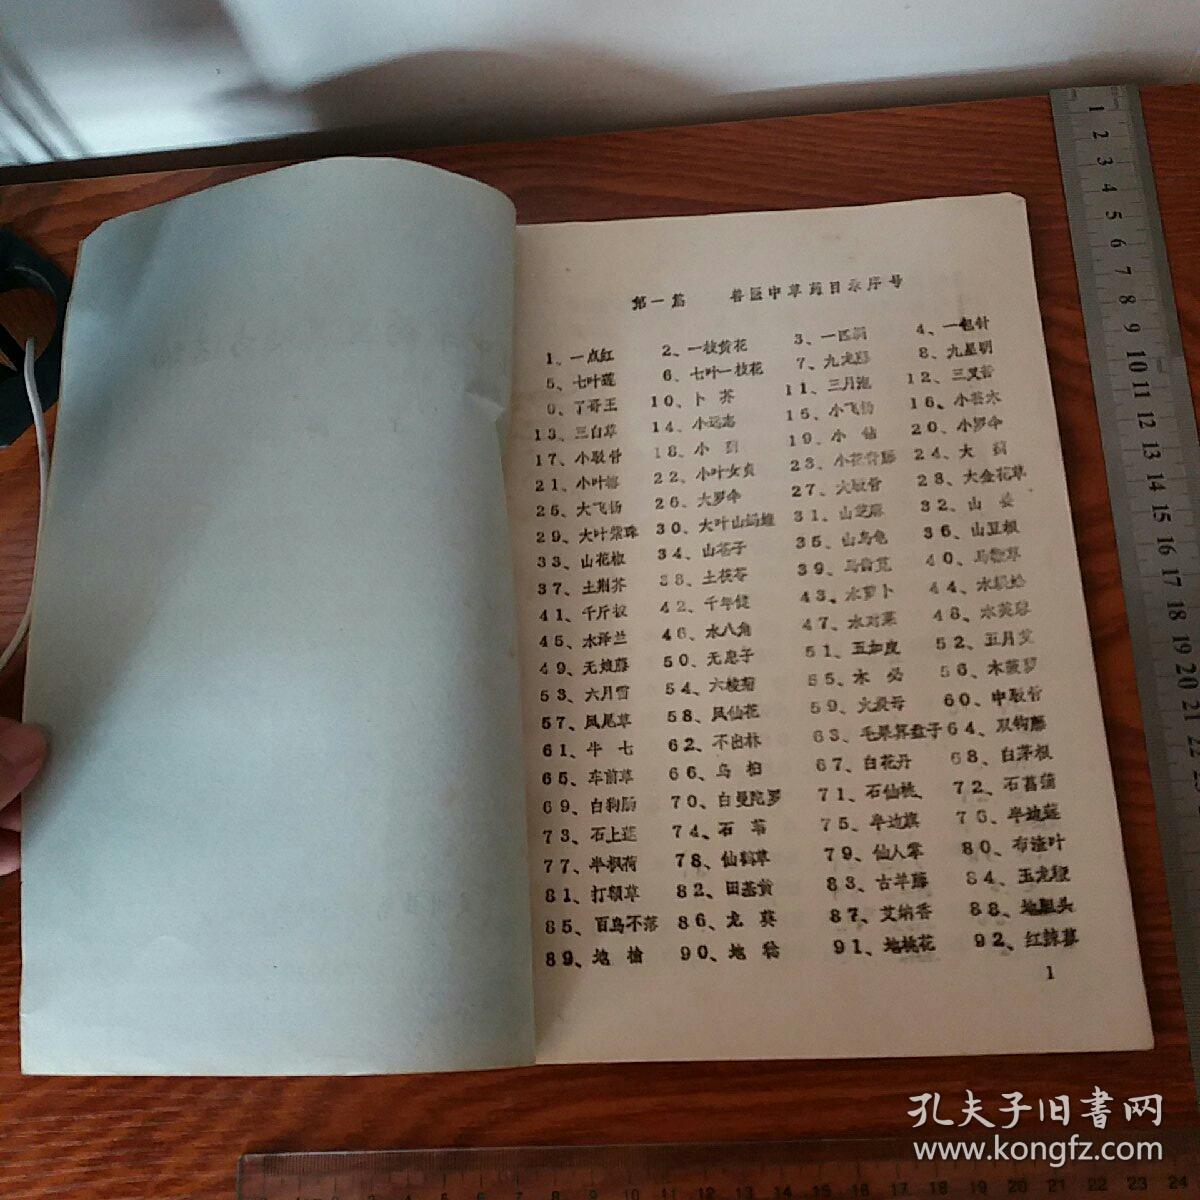 第一篇 兽医中草药目录序号
1、一点红 2、一枝黄花 3、一匹绸 4、一包针
5、七叶莲 6、七叶一枝花 7、九龙 8、九星明
9、了哥王 10、卜芥 11、三月泡 12、三叉苦
13、三白草 14、小远志 15、小飞扬 16、小
17、小驳骨 18、小蓟 19、小钻 20、小罗伞
21、小叶榕 22、小叶女贞 23、小 藤 24、大蓟
25、大飞扬 26、大罗伞 27、大驳骨 28、大金花草
29、大叶紫珠 30、大叶山蚂蝗 31、山芝麻 32、山姜
33、山花椒 34、山苍子 35、山乌龟 36、山豆根
37、土荆芥 38、土茯苓 39、马齿苋 40、马鞭草
41、千斤拔 42、千年健 43、水萝卜 44、水蜈蚣
45、水泽兰 46、水八角 47、水对莱 48、水芙蓉
49、无娘藤 50、无患子 51、五加皮 52、五月艾
53、六月雪 54、六棱菊 55、木必 56、木菠萝
57、凤尾草 58、凤仙花 59、火炭母 60、中驳骨
61、牛七 62、不出林 63、毛果算盘子 64、双钩藤
65、车前草 66、乌桕 67、白花丹 68、白茅根
69、白狗肠 70、白曼陀罗 71、石仙桃 72、石菖蒲
73、石上莲 74、石苇 75、半边旗 76、半边莲
77、半枫荷 78、仙鹤草 79、仙人掌 80、布渣叶
81、打额草 82、田基黄 83、古羊藤 84、玉龙鞭
85、百鸟不落 86、龙葵 87、艾纳香 88、地胆头
89、地榆 90、地稔 91、地桃花 92、红辣蓼
1
1
2
3
4
5
6
7
8
9
10
11
12
13
14
15
16
17
18
19
20
21
22
孔夫子旧書网
www.kongfz.com
7 8 9 10 11 12 13 14 15 16 17 18 19 20 21 22 23 24